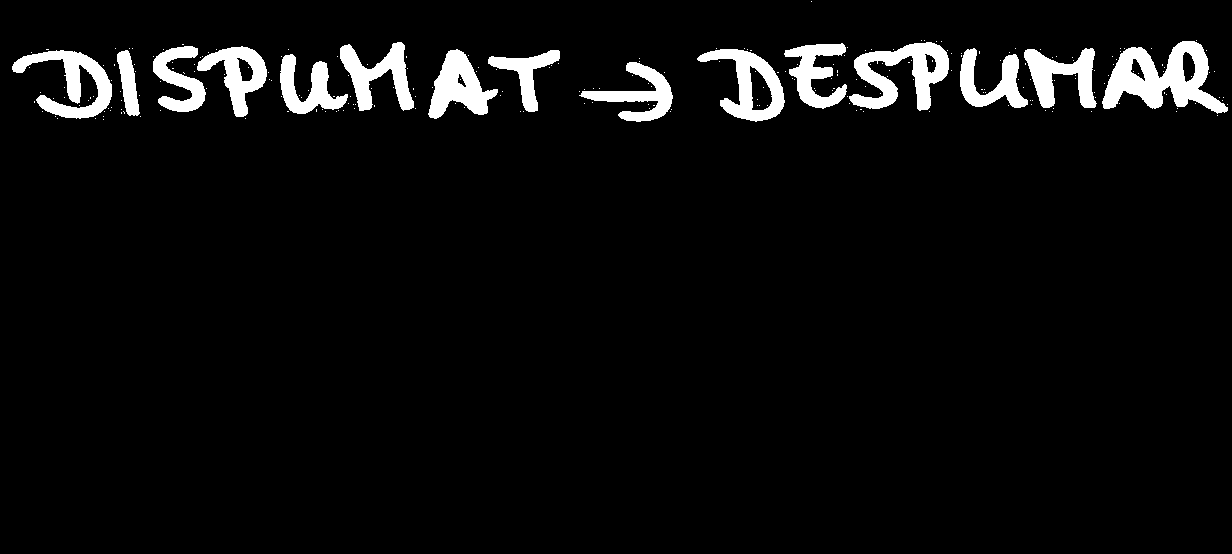 DISPUMAT → DESPUMAR